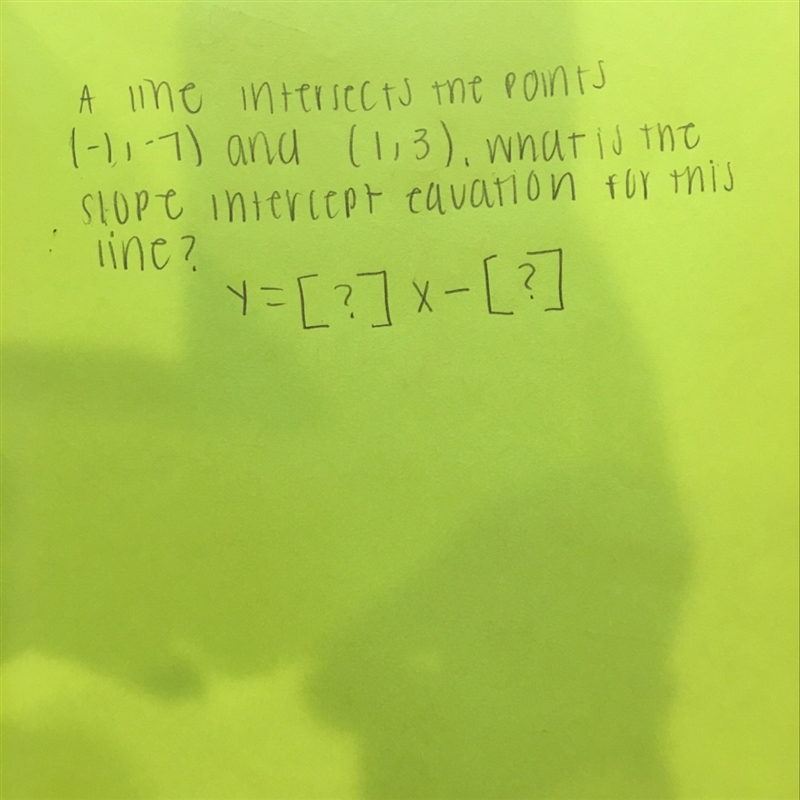 A line intersects the points
(-1, -7) and (1, 3). What is the
slope intercept equation for this
line?
y = [?] x - [?]